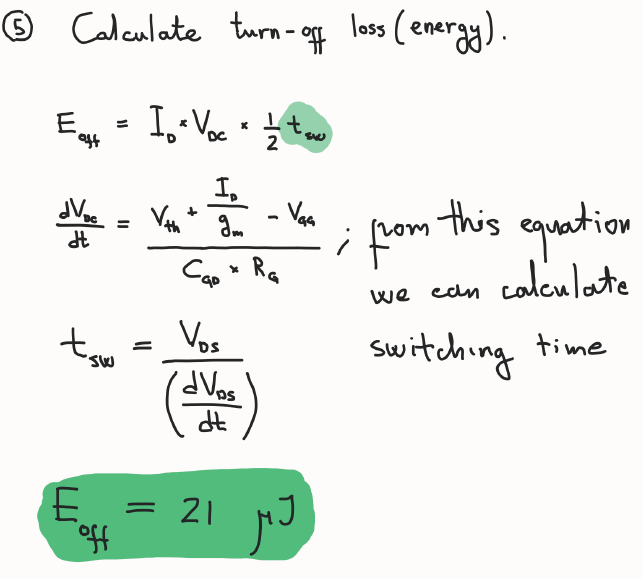 ⑤ Calculate turn-off loss (energy).
E_off = I_D * V_DC * 1/2 t_sw
dV_DC/dt = (V_th + I_D/g_m - V_GG) / (C_GD * R_G) ; from this equation
we can calculate
switching time
t_sw = V_DS / (dV_DS/dt)
E_off = 21 μJ